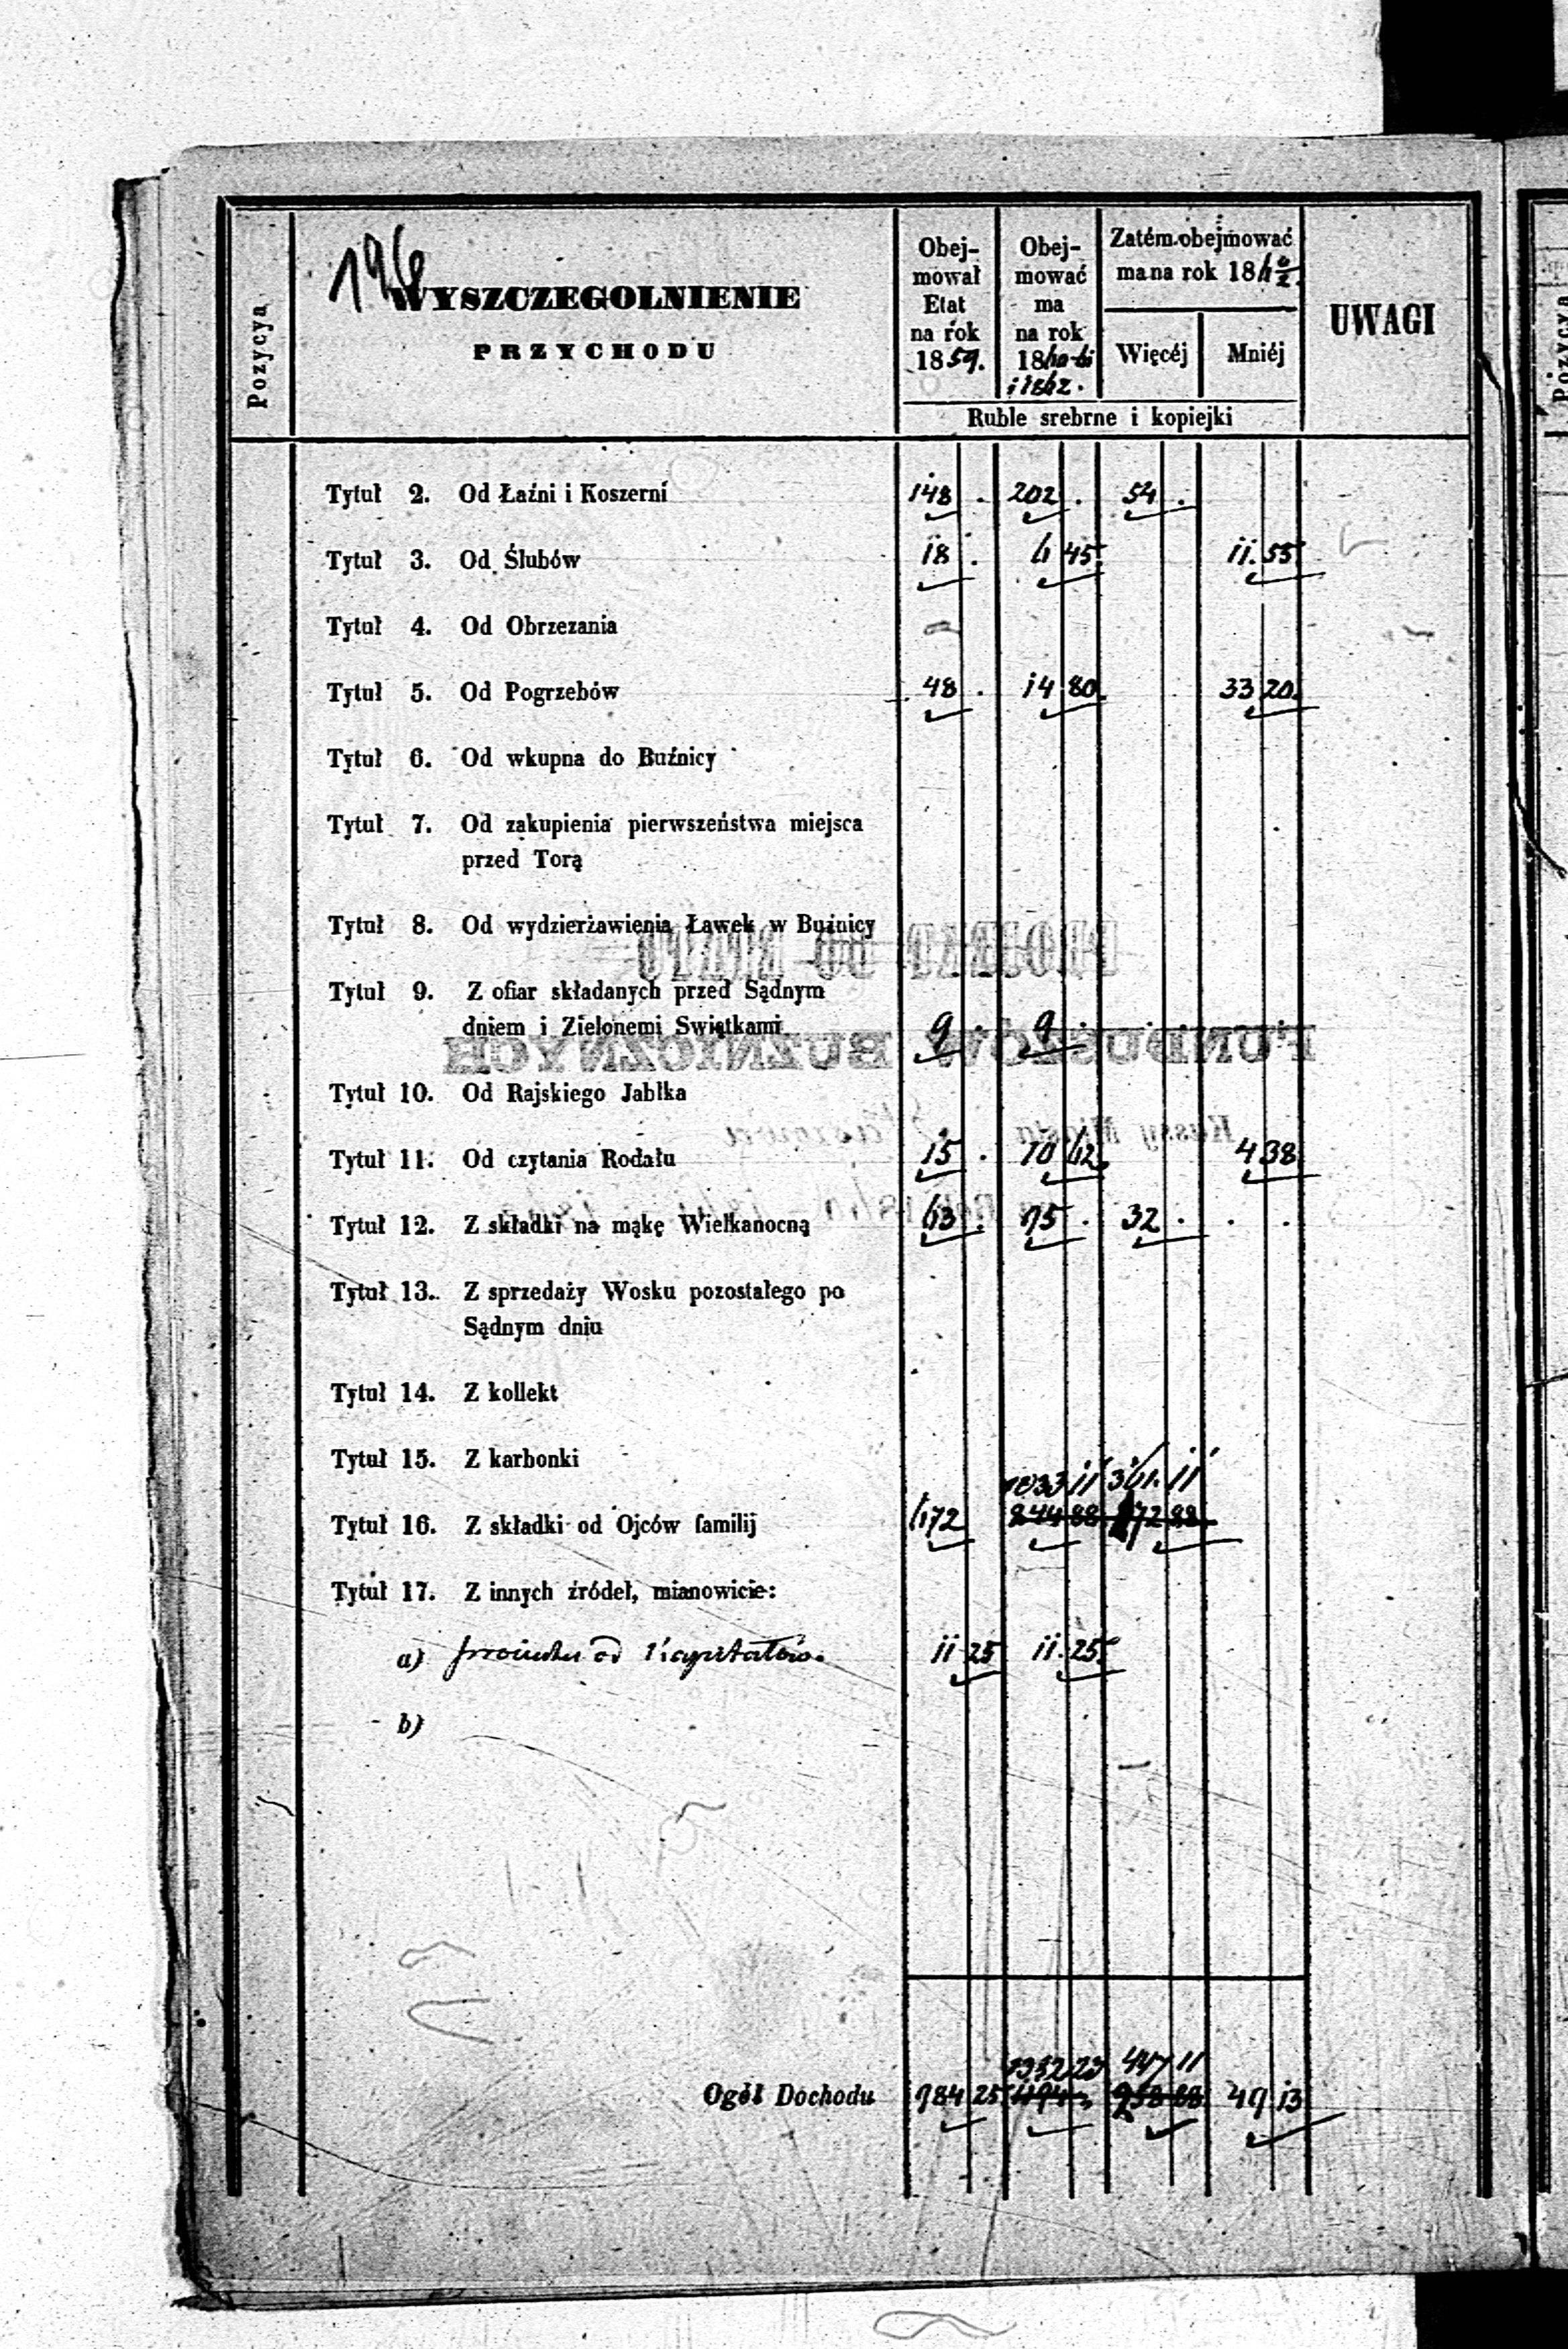 196
WYSZCZEGOLNIENIE
PRZYCHODU
Pozycya
Obej-
mował
Etat
na rok
1859.
Obej-
mować
ma
na rok
1860-61
i 1862.
Zatém obejmować
ma na rok 1860/2.
Więcéj Mniéj
UWAGI
Ruble srebrne i kopiejki
Tytuł 2. Od Łaźni i Koszerni 148 . 202 . 54 .
Tytuł 3. Od Ślubów 18 . 6 45 11. 55
Tytuł 4. Od Obrzezania
Tytuł 5. Od Pogrzebów 48 . 14 80. 33 20.
Tytuł 6. Od wkupna do Buźnicy
Tytuł 7. Od zakupienia pierwszeństwa miejsca
przed Torą
Tytuł 8. Od wydzierżawienia Ławek w Buźnicy
Tytuł 9. Z ofiar składanych przed Sądnym
dniem i Zielonemi Swiątkami 9 . 9 .
Tytuł 10. Od Rajskiego Jabłka
Tytuł 11. Od czytania Rodału 15 . 10 62. 4 38
Tytuł 12. Z składki na mąkę Wielkanocną 63 . 95 . 32 . . .
Tytuł 13. Z sprzedaży Wosku pozostałego po
Sądnym dniu
Tytuł 14. Z kollekt
Tytuł 15. Z karbonki
1033 11 361. 11
Tytuł 16. Z składki od Ojców familij 672 844 88 172 88
Tytuł 17. Z innych źródeł, mianowicie:
a) procentu od Kapitałów. 11 25 11. 25.
b)
1382 23 447 11
Ogół Dochodu 984 25 1194 258 88 49 13